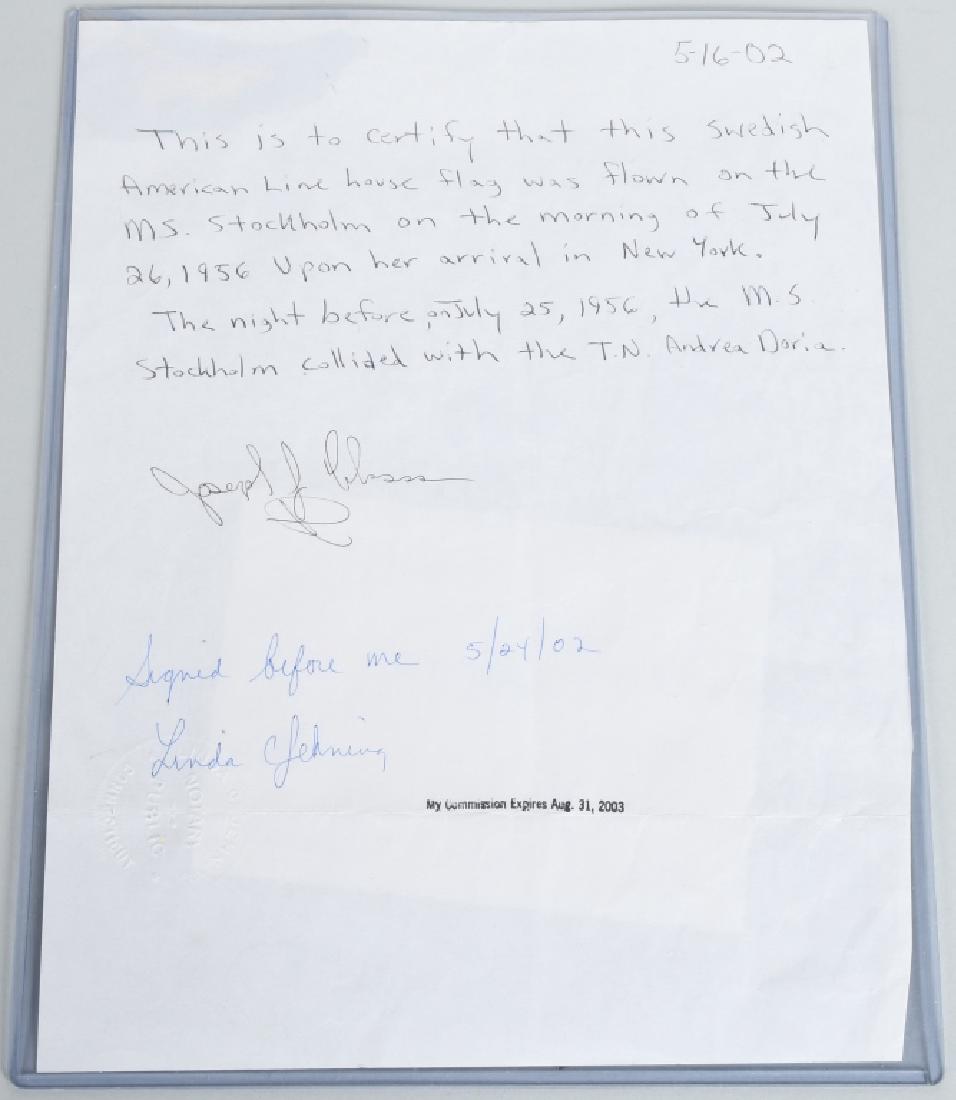 5-16-02
This is to certify that this Swedish
American Line house flag was flown on the
MS. Stockholm on the morning of July
26, 1956 Upon her arrival in New York.
The night before, on July 25, 1956, the M.S.
Stockholm collided with the T.N. Andrea Doria.
Joseph J.
Signed before me 5/24/02
Linda
My Commission Expires Aug. 31, 2003
NOTARY
PUBLIC